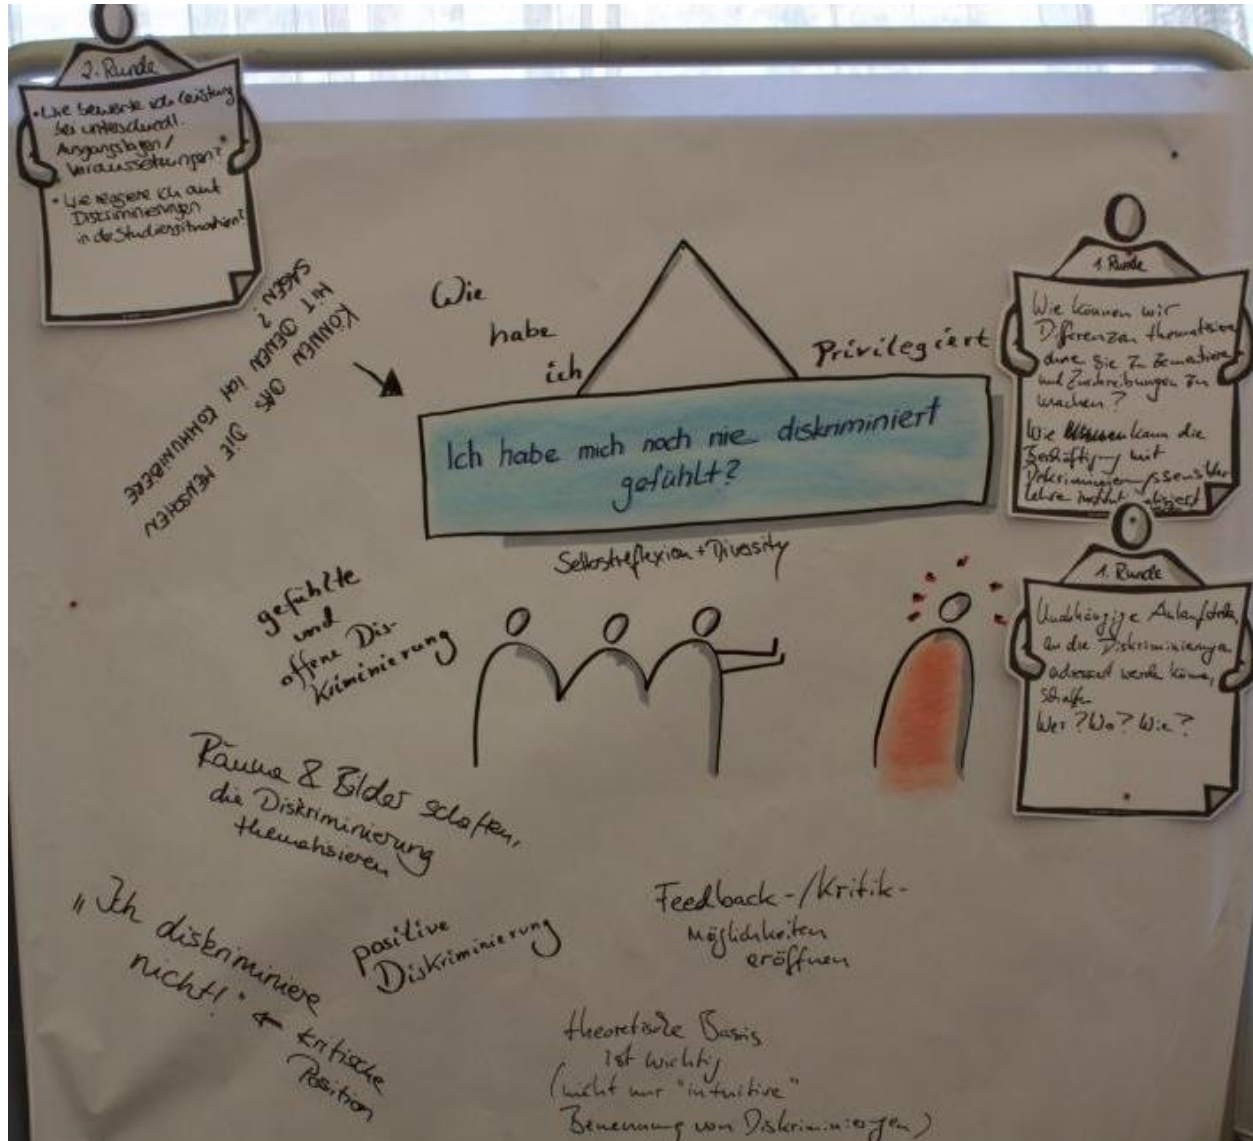 2. Runde
• Wie bewerte ich Leistung
bei unterschiedl.
Ausgangslagen/
Voraussetzungen?
• Wie reagiere ich auf
Diskriminierungen
in der Studiensituation?
KÖNNEN DAS DIE MENSCHEN
MIT DENEN ICH KOMMUNIZIERE
SAGEN?
Wie
habe
ich
Privilegiert
Ich habe mich noch nie diskriminiert
gefühlt?
Selbstreflexion + Diversity
1. Runde
Wie können wir
Differenzen thematisieren
ohne sie zu zementieren
und Zuschreibungen zu
machen?
Wie kann die
Beschäftigung mit
Lehre
1. Runde
Unabhängige Anlaufstelle,
an die Diskriminierungen
adressiert werden können,
schaffen
Wer? Wo? Wie?
gefühlte
und
offene Dis-
kriminierung
Räume & Bilder schaffen,
die Diskriminierung
thematisieren
„Ich diskriminiere
nicht!" ← kritische
Position
positive
Diskriminierung
Feedback-/Kritik-
möglichkeiten
eröffnen
theoretische Basis
ist wichtig
(nicht nur "intuitive"
Benennung von Diskriminierungen)